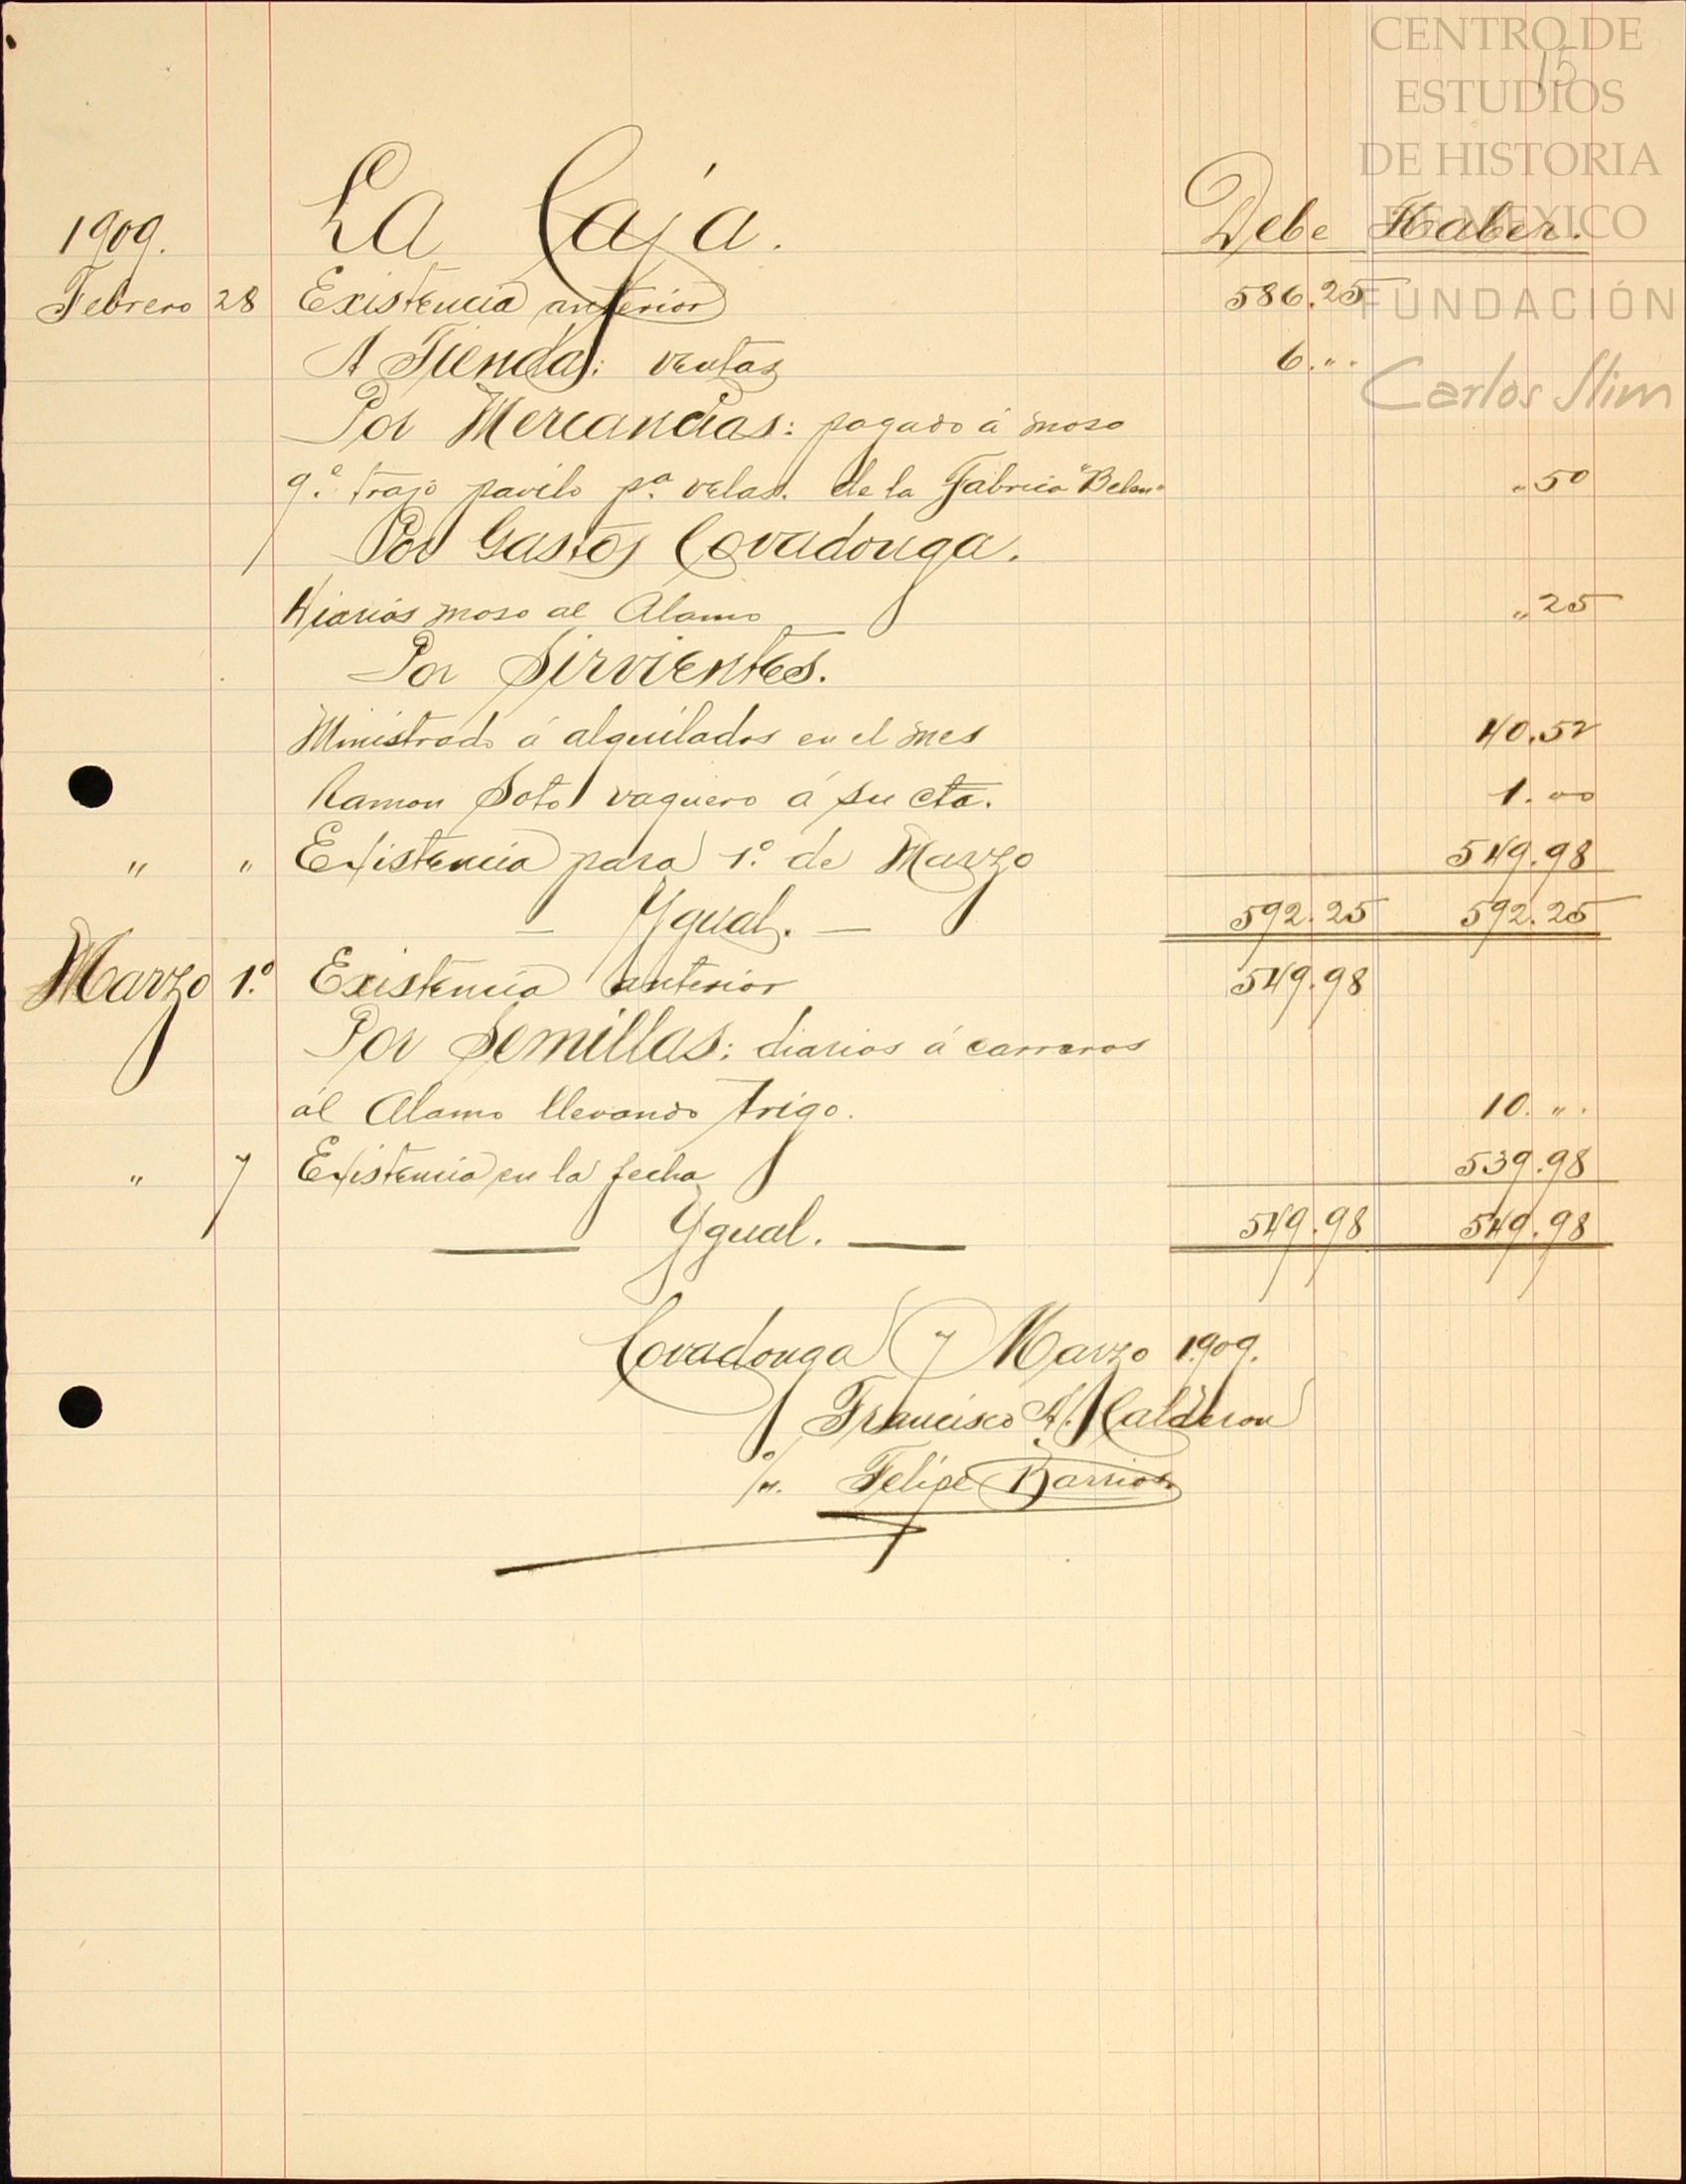 CENTRO DE
ESTUDIOS
DE HISTORIA
DE MEXICO
FUNDACIÓN
Carlos Slim
15
1909. La Caja. Debe Haber.
Febrero 28 Existencia anterior 586.25
A Tienda: ventas 6.".
Por Mercancias: pagado á moso
q.e trajo pavilo p.a velas. de la Fabrica "Belen" "50
Por Gastos Covadonga.
Diarios moso al Alamo "25
Por Sirvientes.
Ministrado á alquilados en el mes 40.52
Ramon Soto vaquero á su cta. 1.00
" " Existencia para 1.o de Marzo 549.98
— Ygual. — 592.25 592.25
Marzo 1.o Existencia anterior 549.98
Por Semillas: diarios á carreros
al Alamo llevando trigo. 10.".
" 7 Existencia en la fecha 539.98
— Ygual. — 549.98 549.98
Covadonga 7 Marzo 1909.
Francisco A. Calderon
Felipe Barrios